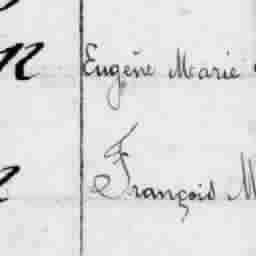 n Eugène Marie
François M